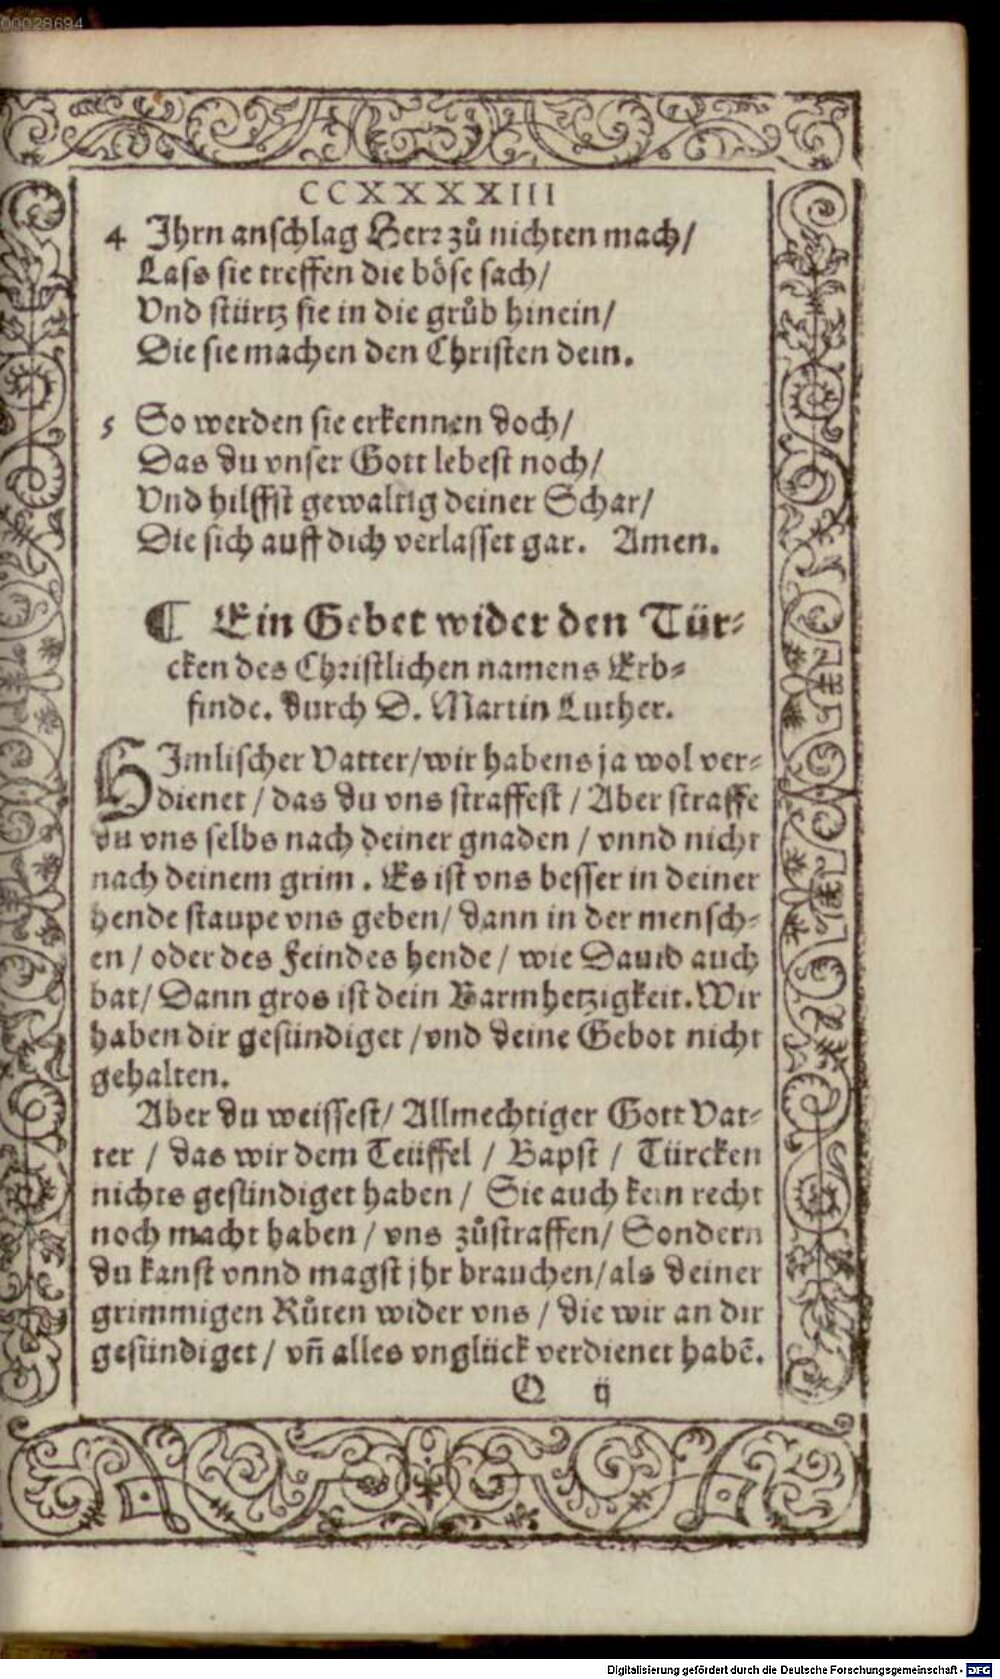 00028694
CCXXXXXIII
4 Ihrn anschlag Herr zů nichten mach/
Lass sie treffen die böse sach/
Vnd stürtz sie in die grůb hinein/
Die sie machen den Christen dein.
5 So werden sie erkennen doch/
Das du vnser Gott lebest noch/
Vnd hilffst gewaltig deiner Schar/
Die sich auff dich verlasset gar. Amen.
¶ Ein Gebet wider den Tür-
cken des Christlichen namens Erb-
finde. durch D. Martin Luther.
HImlischer Vatter/wir habens ja wol ver-
dienet / das du vns straffest / Aber straffe
du vns selbs nach deiner gnaden / vnnd nicht
nach deinem grim. Es ist vns besser in deiner
hende staupe vns geben/ dann in der mensch-
en / oder des Feindes hende / wie Dauid auch
bat/ Dann gros ist dein Barmhetzigkeit. Wir
haben dir gesündiget /vnd deine Gebot nicht
gehalten.
Aber du weissest/ Allmechtiger Gott Vat-
ter / das wir dem Teüffel / Bapst / Türcken
nichts gesündiget haben / Sie auch kein recht
noch macht haben / vns zůstraffen/ Sondern
du kanst vnnd magst jhr brauchen/als deiner
grimmigen Růten wider vns / die wir an dir
gesündiget / vñ alles vnglück verdienet habẽ.
Q ij
Digitalisierung gefördert durch die Deutsche Forschungsgemeinschaft - DFG